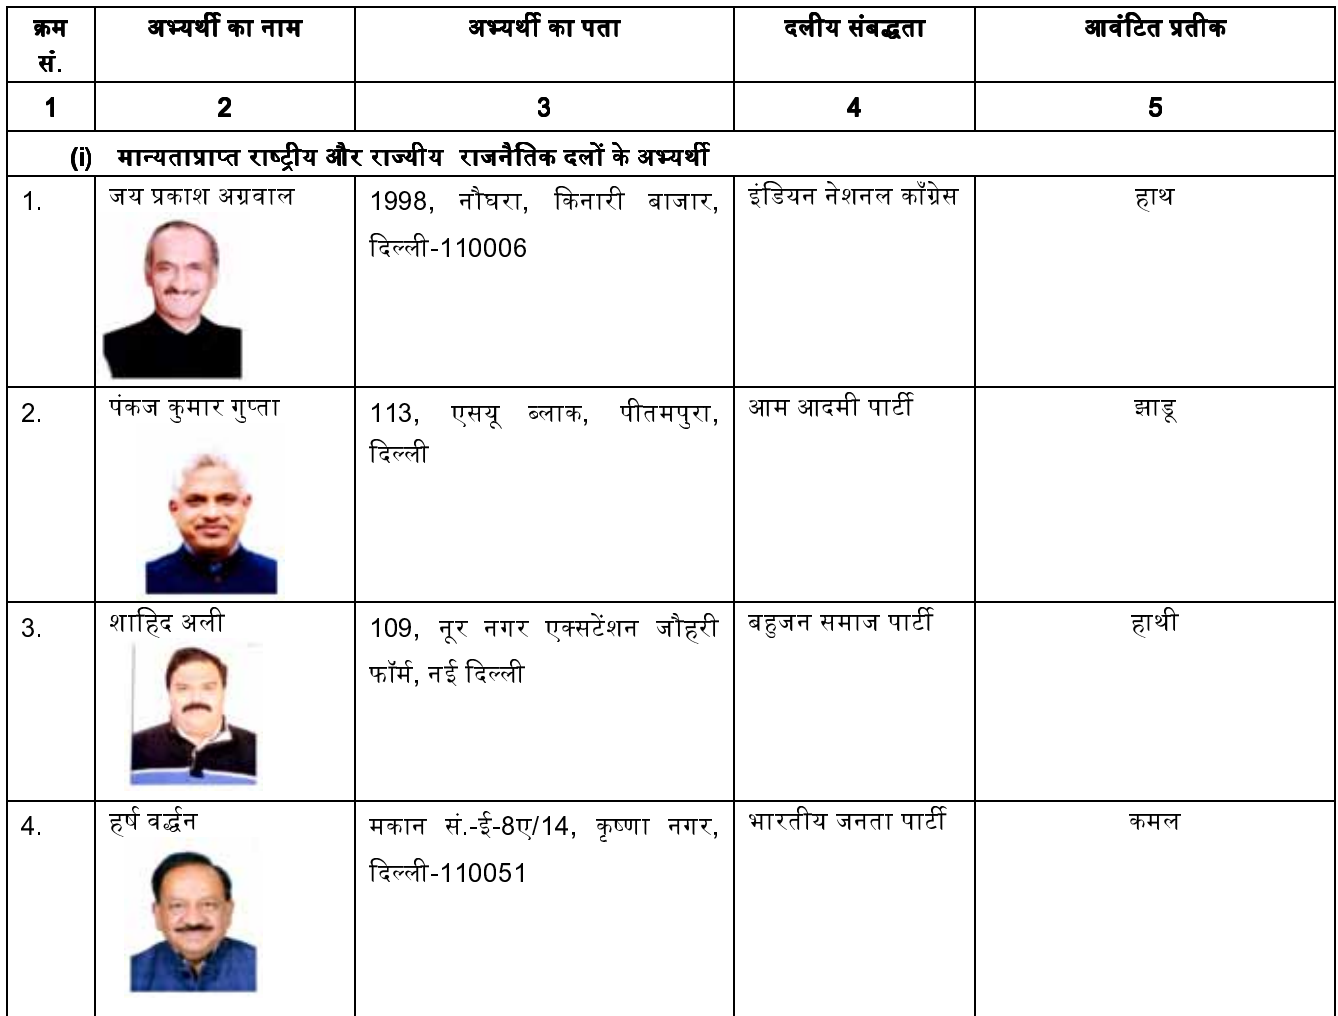 क्रम सं.
अभ्यर्थी का नाम
अभ्यर्थी का पता
दलीय संबद्धता
आवंटित प्रतीक
1
2
3
4
5
(i) मान्यताप्राप्त राष्ट्रीय और राज्यीय राजनैतिक दलों के अभ्यर्थी
1.
जय प्रकाश अग्रवाल
1998, नौघरा, किनारी बाजार,
दिल्ली-110006
इंडियन नेशनल काँग्रेस
हाथ
2.
पंकज कुमार गुप्ता
113, एसयू ब्लाक, पीतमपुरा,
दिल्ली
आम आदमी पार्टी
झाडू
3.
शाहिद अली
109, नूर नगर एक्सटेंशन जौहरी
फॉर्म, नई दिल्ली
बहुजन समाज पार्टी
हाथी
4.
हर्ष वर्द्धन
मकान सं.-ई-8ए/14, कृष्णा नगर,
दिल्ली-110051
भारतीय जनता पार्टी
कमल